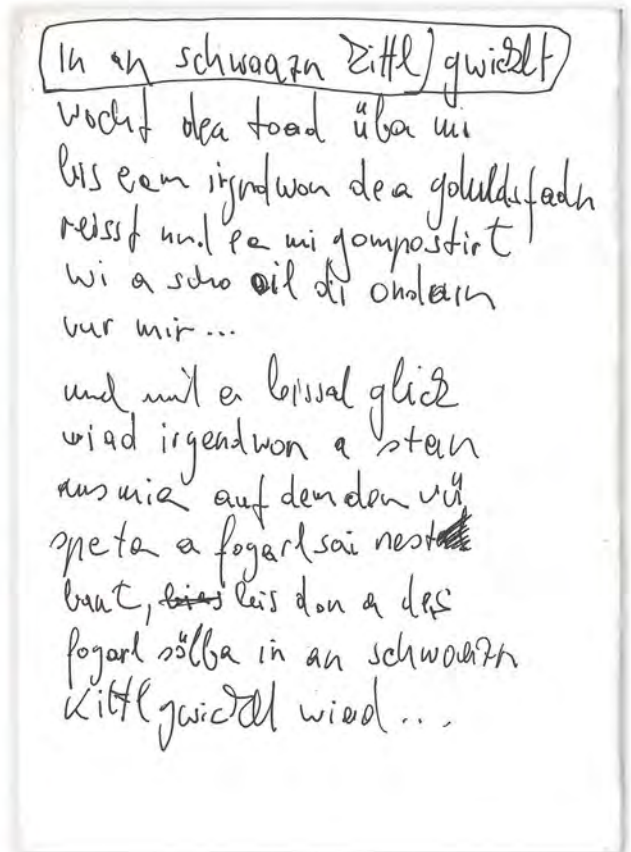 In an schwaazn Kittl gwicklt
wocht dea toad üba mi
bis eam irgndwon dea geduldsfadn
reisst und ea mi gompostirt
wi a scho oil di ondarn
vur mir...
und mit a bissal glick
wiad irgendwon a stan
aus mia auf dem don vü
speta a fogarl sai nest
baut, bis don a des
fogarl sölba in an schwoazn
Kittl gwicklt wiad...